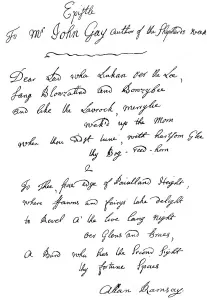 Epistle
To Mr John Gay Author of the Shepherds Week
Dear Lad wha Linkan o'er the Lee,
Sang Blowzalind and Bowzybee
And like the Lavrock, merrylie
wak'd up the Morn
When thou didst tune, with heartsom Glee
thy Bog-Reed-horn
2
To thee frae Edge of Heights,
where fawns and fairys take delight
To Revel a' the live lang Night
O'er Glens and Braes,
A Bard wha has the Second Sight
thy fortune Spaes
Allan Ramsay